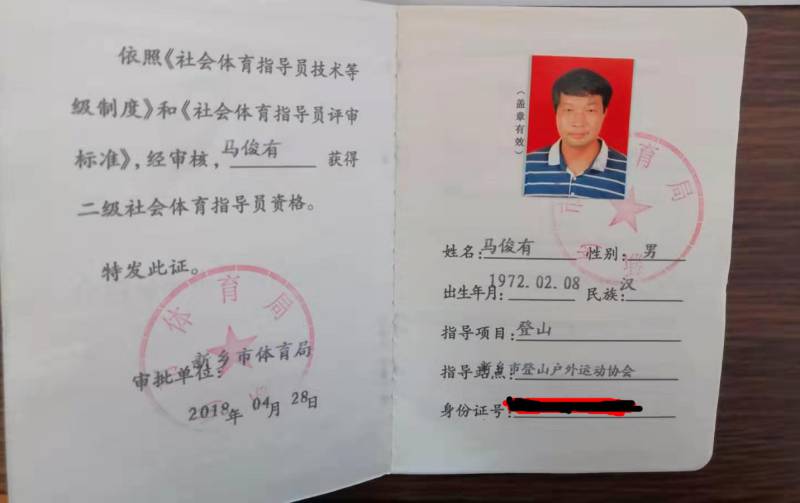 依照《社会体育指导员技术等
级制度》和《社会体育指导员评审
标准》，经审核，马俊有 获得
二级社会体育指导员资格。
特发此证。
体育局
新乡市体育局
审批单位：
2018年 04月 28日
（盖章有效）
育局
姓名：马俊有 性别：男
出生年月：1972.02.08 民族：汉
指导项目：登山
指导站点：新乡市登山户外运动协会
身份证号：